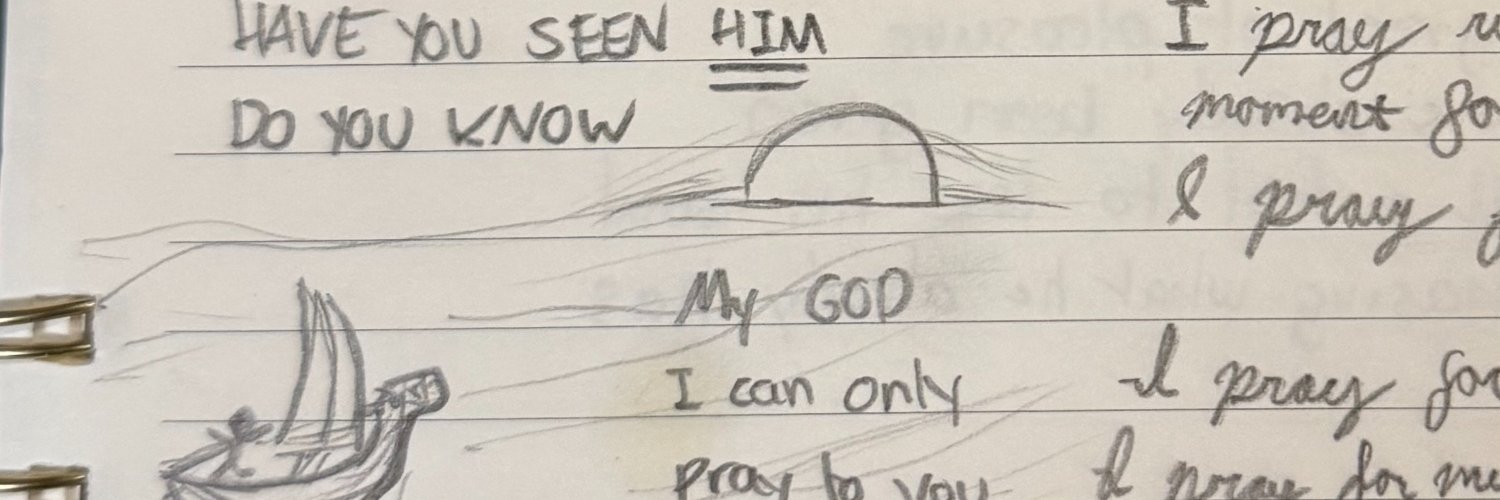 HAVE YOU SEEN HIM
DO YOU KNOW
My GOD
I can only
pray to you
I pray
moment
I pray
I pray for
I pray for